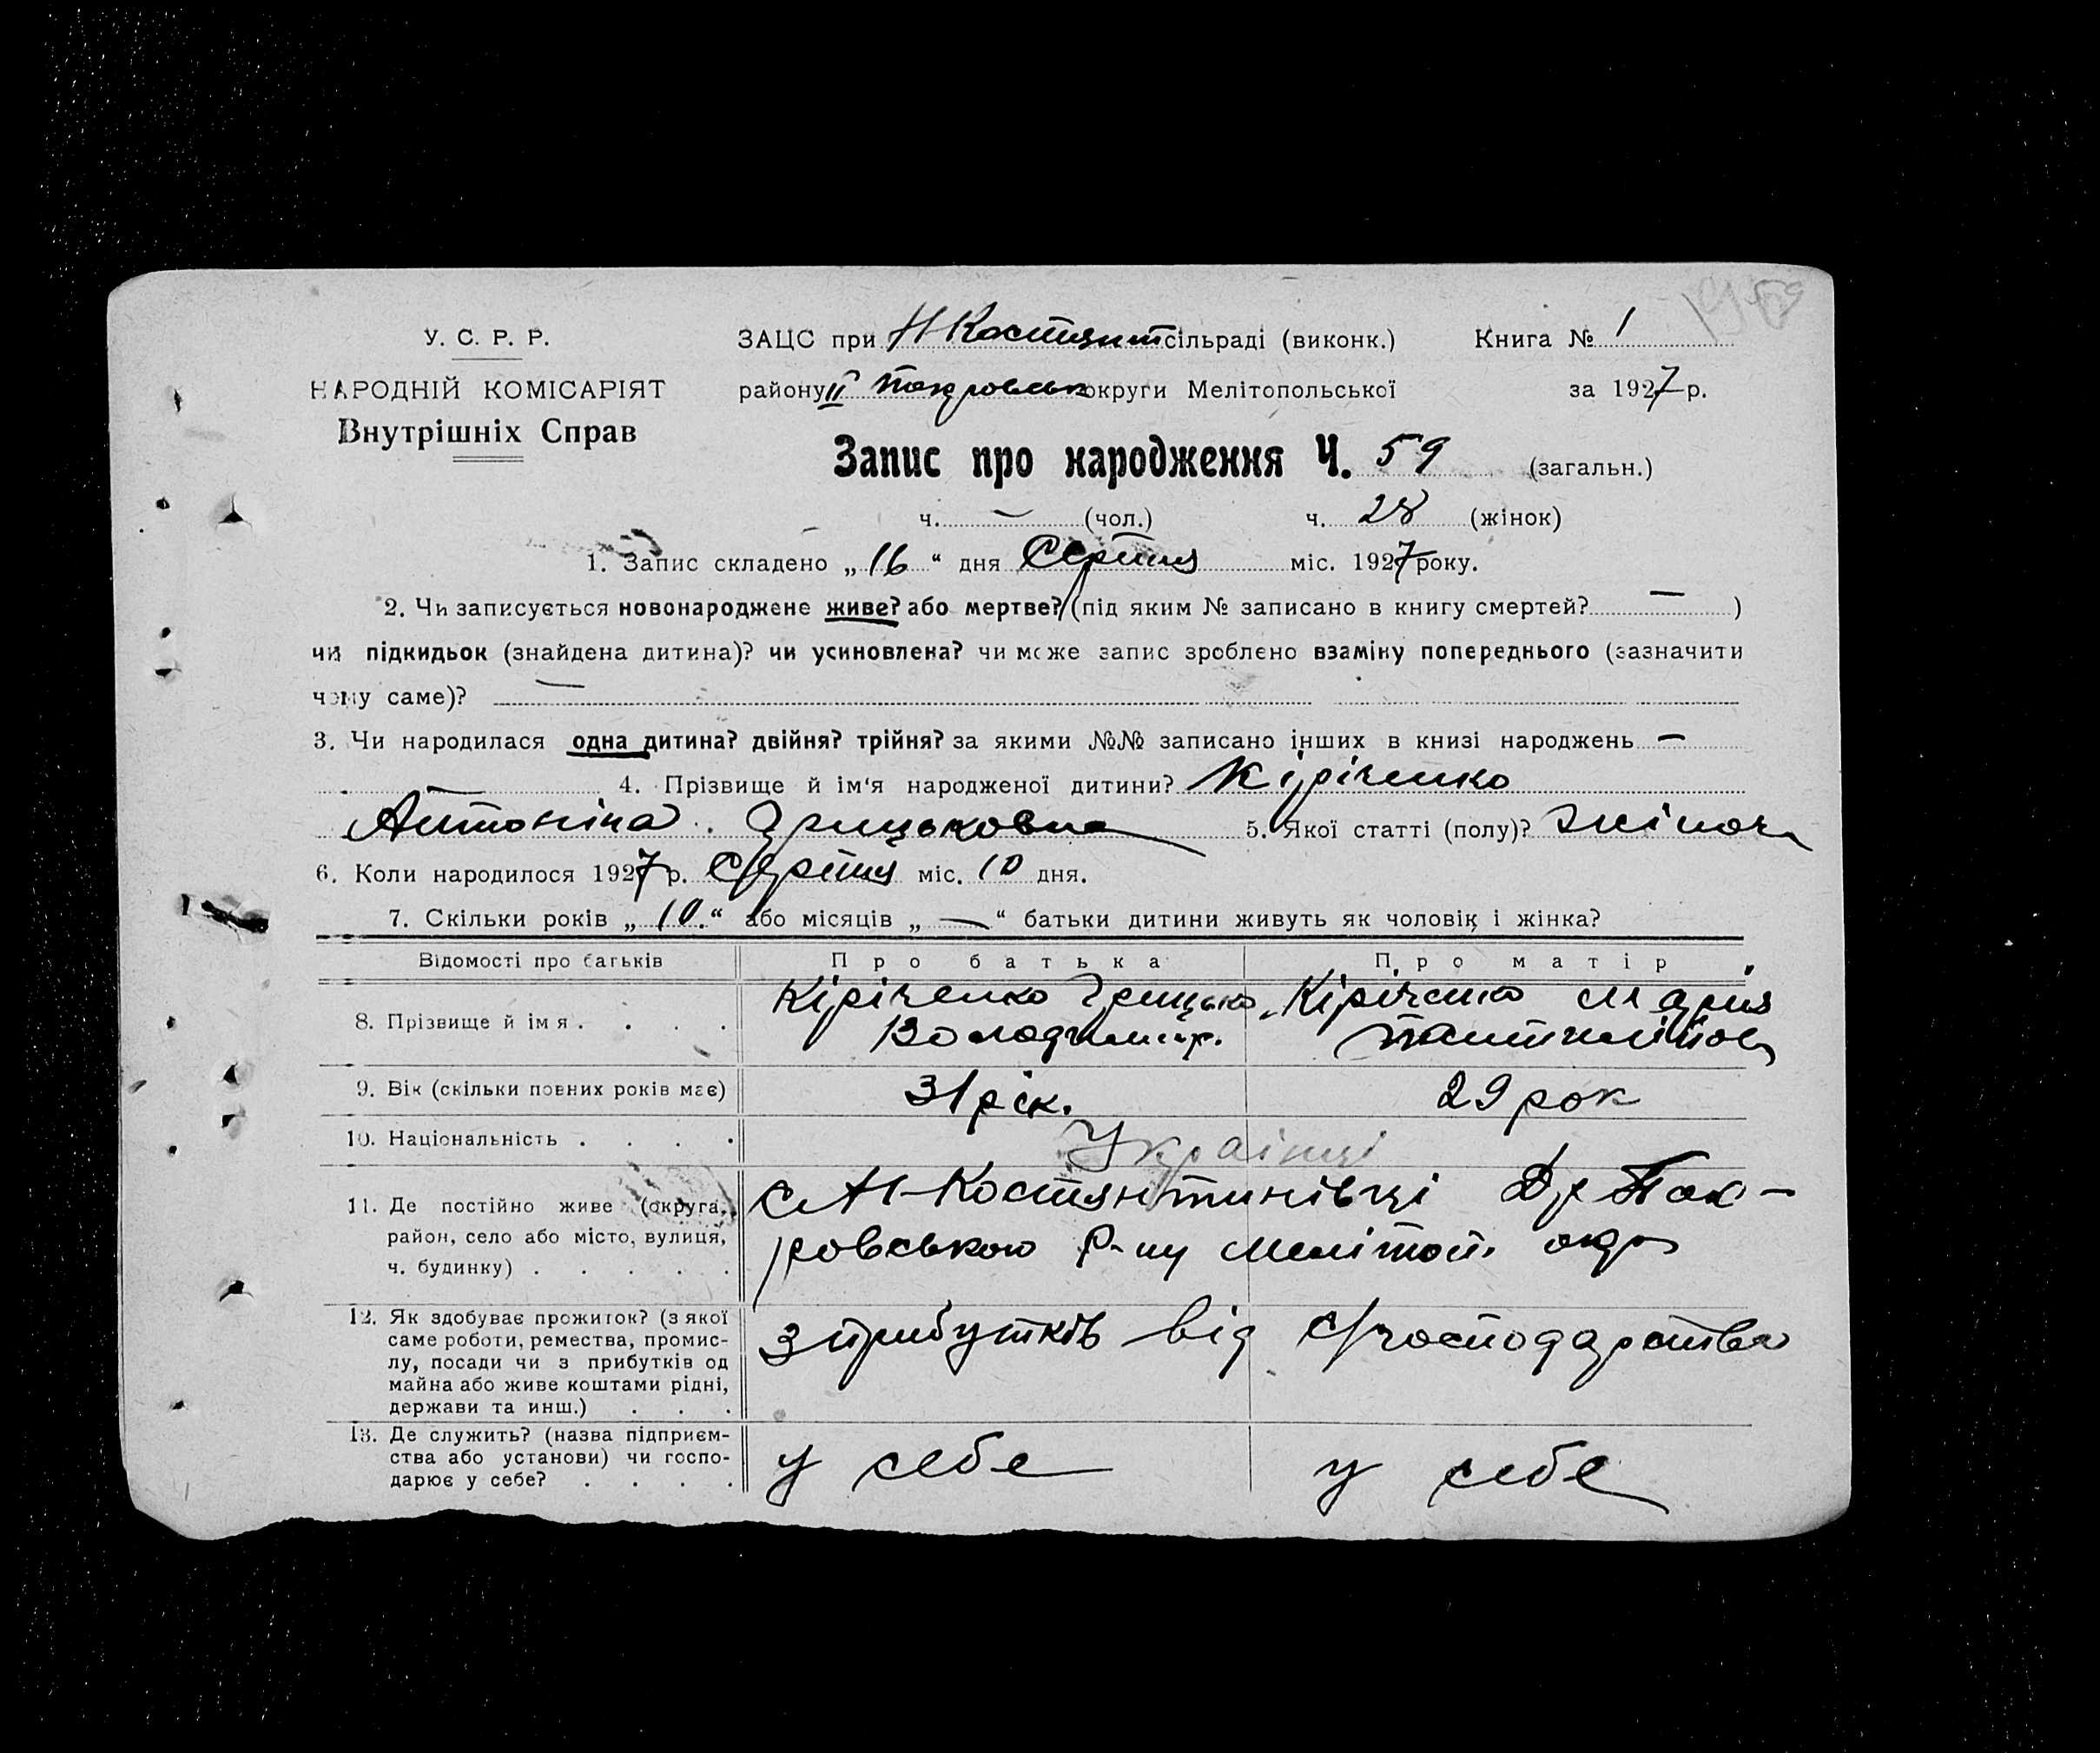 У. С. Р. Р.
НАРОДНІЙ КОМІСАРІЯТ
Внутрішніх Справ
ЗАЦС при Н Костянт сільраді (виконк.) Книга № 1
району II Покровськ округи Мелітопольської за 1927 р.
Запис про народження Ч. 59 (загальн.)
ч. — (чол.) ч. 28 (жінок)
1. Запис складено „16“ дня Серпня міс. 1927 року.
2. Чи записується новонароджене живе? або мертве? (під яким № записано в книгу смертей? — )
чи підкидьок (знайдена дитина)? чи усиновлена? чи може запис зроблено взаміну попереднього (зазначити
чому саме)? —
3. Чи народилася одна дитина? двійня? трійня? за якими №№ записано інших в книзі народжень —
— 4. Прізвище й ім‘я народженої дитини? Кіріченко
Антоніна Грицьковна 5. Якої статті (полу)? жіноч
6. Коли народилося 1927 р. Серпня міс. 10 дня.
7. Скільки років „10.“ або місяців „—“ батьки дитини живуть як чоловік і жінка?
Відомості про батьків Про батька Про матір
8. Прізвище й імя . . . . Кіріченко Грицько Кіріченко Мария
Володимир.
9. Вік (скільки повних років має) 31 рік. 29 рок
10. Національність . . . . Украінці
11. Де постійно живе (округа, район, село або місто, вулиця, ч. будинку) . . . . .
с Н-Костянтинівці Др Пок-
ровського Р-ну Мелітоп окр
12. Як здобуває прожиток? (з якої
саме роботи, ремества, промис-
лу, посади чи з прибутків од
майна або живе коштами рідні,
держави та инш.) . . .
з прибутків від с/господарства
13. Де служить? (назва підприєм-
ства або установи) чи госпо-
дарює у себе? . . . .
у себе у себе